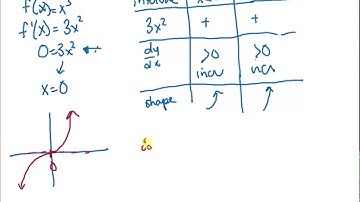 f'(x)=x³
f'(x)=3x²
0=3x²
x=0
3x² + +
dy/dx >0 >0
incr incr
shape
0